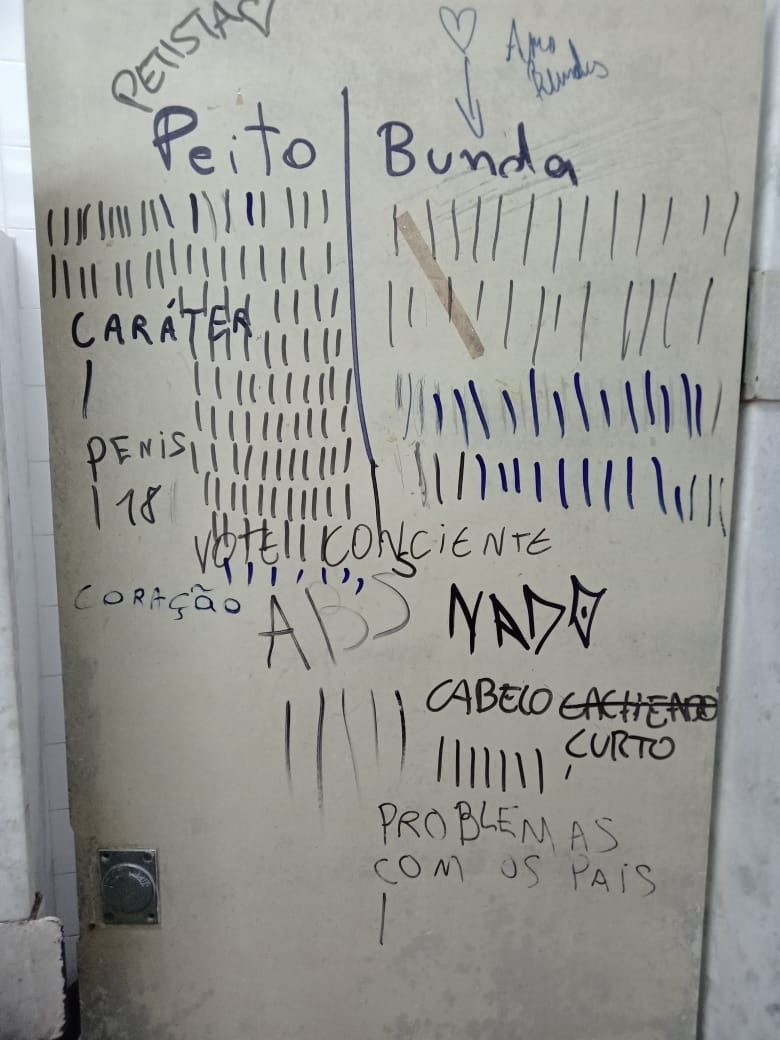 PETISTAS
Amo
Peito
Bunda
CARÁTER
PENIS
18
VOTE!! CONSCIENTE
CORAÇÃO
ABS
NADA
CABELO CACHEADO
CURTO
PROBLEMAS
COM OS PAIS